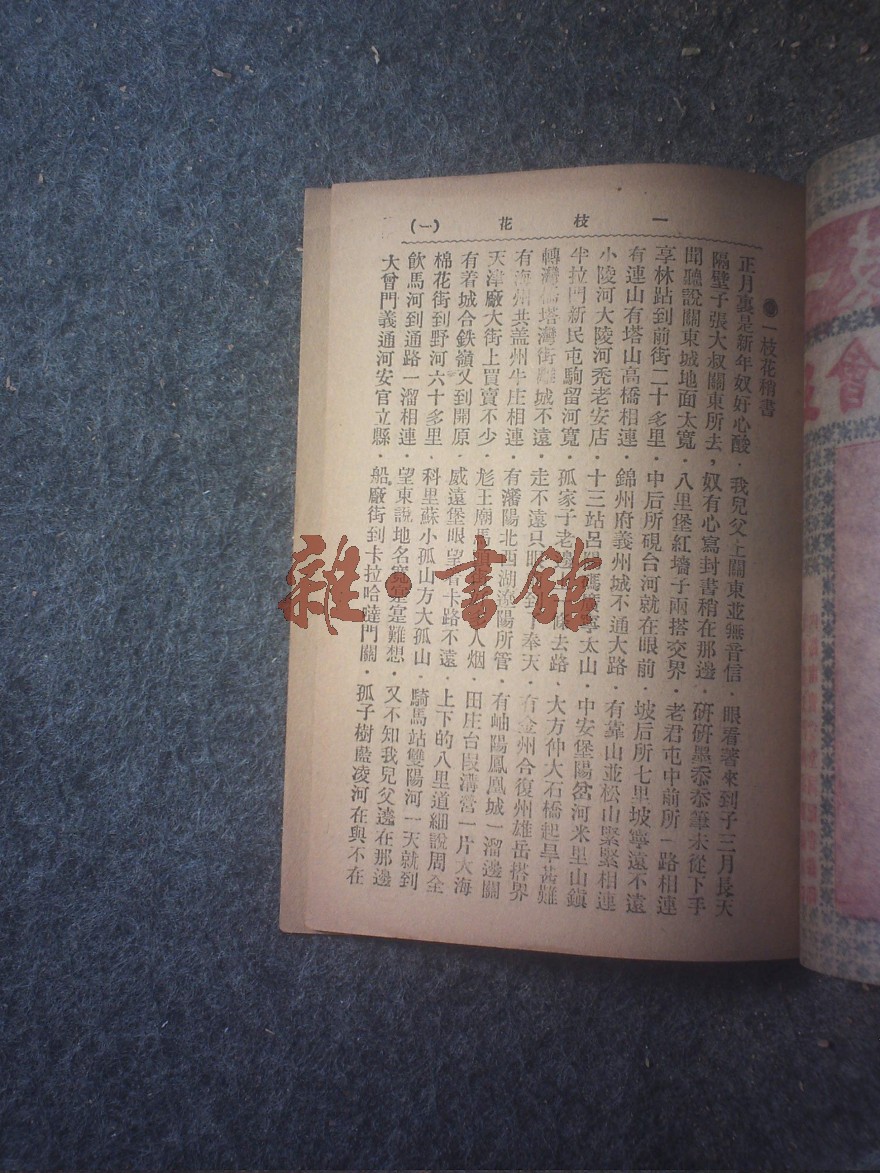 一枝花 (一)
一枝花稍書
正月裏是新年奴好心酸・我兒父上關東並無音信・眼看著來到子三月長天
隔壁子張大叔關東所去，奴有心寫封書稍在那邊・研研墨忝忝筆未從下手
聞聽說關東城地面太寬・八里堡紅墻子兩搭交界・老君屯中前所一路相連
享林跕到前街二十多里・中后所硯台河就在眼前・坡后所七里坡寧遠不遠
有連山有塔山高橋相連・錦州府義州城不通大路・有靠山並松山緊緊相連
小陵河大陵河禿老安店・十三站呂寧太山・中安堡陽岔河米里山鎮
半拉門新民屯駒留河寬・孤家子老去路・大方仲大石橋起旱甚難
轉灣塔灣街離城不遠・走不遠只眼奉天・有金州合復州雄岳搭界
有海州共盖州牛庄相連・有瀋陽北西湖遼陽所管・有岫陽鳳凰城一溜邊關
天津廠大街上買賣不少・彪王廟馬人烟・田庄台叚溝营一片大海
有着城合鉄嶺又到開原・威遠堡眼望着卡路不遠・上下的八里道細說周全
棉花街到野河六十多里・科里蘇小孤山方大孤山・騎馬站雙陽河一天就到
飲馬河到通路一溜相連・望東說地名寬難想・又不知我兒父遠在那邊
大曾門義通河安官立縣・船廠街到卡拉哈薘門關・孤子樹藍凌河在與不在
雜・書館
會